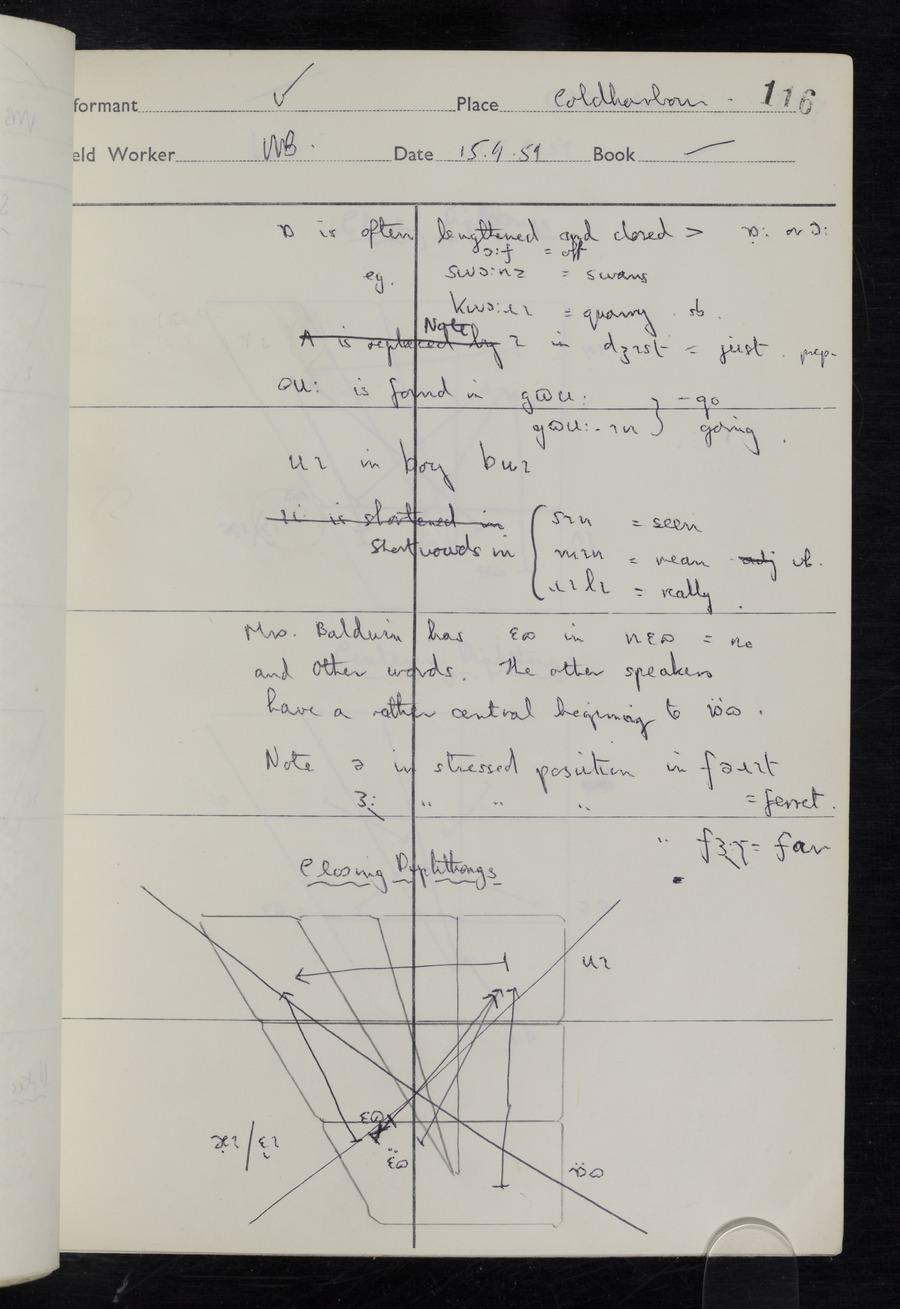 formant ✓ Place Coldharbour . 116
eld Worker WB. Date 15.9.59 Book —
ɒ is often lengthened and closed > ɒ̣: or ɔ:
ɔ:f = off
eg. swɔ:nz = swans
kwɔ:ɹɪ = quarry sb.
Note
ʌ is replaced by ɪ in dʒɪst = just . prep.
ɷu: is found in gɷu: } – go
gɷu:-ɪn } going .
uɪ in boy buɪ
ɪi is shortened in { sɪn = seen
Short vowels in mɪn = mean adj vb.
ɹɪlɪ = really .
Mrs. Baldwin has ɛɷ in nɛɷ = no
and other words. The other speakers
have a rather central beginning to ɒ̈ɷ .
Note ə in stressed position in fəɹɪt
ɜ: " " " = ferret .
" fɜ:ɽ = far
Closing Diphthongs
uɪ
ɛɷ
æɪ/ɛ̞ɪ ɛ̈ɷ ɒ̈ɷ